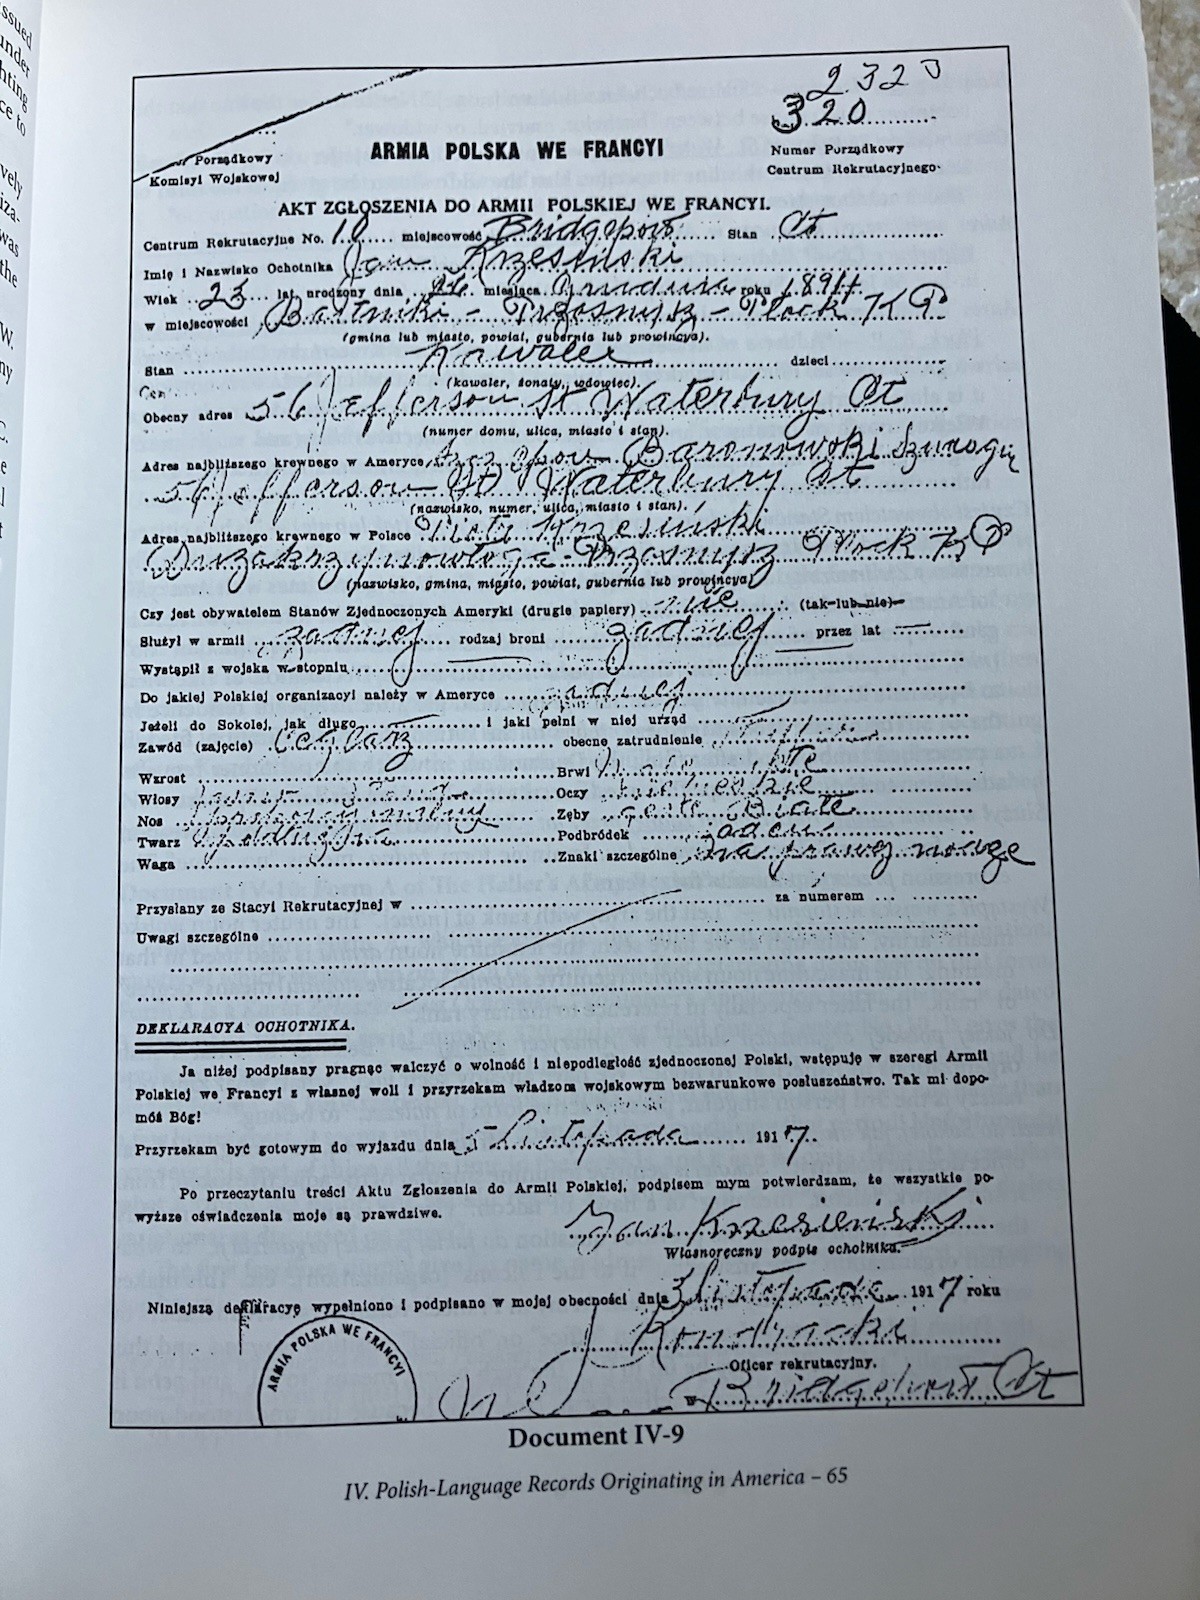 ssued
under
hting
ce to
vely
iza-
was
the
W.
ny
C.
e
2323
320
Porządkowy
Komisyi Wojskowej
ARMIA POLSKA WE FRANCYI
Numer Porządkowy
Centrum Rekrutacyjnego
AKT ZGŁOSZENIA DO ARMII POLSKIEJ WE FRANCYI.
Centrum Rekrutacyjne No. 10 miejscowość Bridgeport Stan Ct
Imię i Nazwisko Ochotnika Jan Krzesiński
Wiek 23 lat, urodzony dnia miesiąca Grudnia roku 1894
w miejscowości - Przasnysz - Płock K P
(gmina lub miasto, powiat, gubernia lub prowincya).
Stan Kawaler dzieci
(kawaler, żonaty, wdowiec).
Obecny adres 56 Jefferson St Waterbury Ct
(numer domu, ulica, miasto i stan).
Adres najbliższego krewnego w Ameryce Szczepan Baranowski Szwagier
Jefferson St Waterbury Ct
(nazwisko, numer, ulica, miasto i stan).
Adres najbliższego krewnego w Polsce Piotr Krzesiński
Przasnysz Płock K P
(nazwisko, gmina, miasto, powiat, gubernia lub prowincya)
Czy jest obywatelem Stanów Zjednoczonych Ameryki (drugie papiery) nie (tak-lub-nie)
Służył w armii żadnej rodzaj broni żadnej przez lat
Wystąpił z wojska w stopniu
Do jakiej Polskiej organizacyi należy w Ameryce żadnej
Jeżeli do Sokolej, jak długo i jaki pełni w niej urząd
Zawód (zajęcie) ceglarz obecne zatrudnienie
Wzrost Brwi
Włosy Oczy niebieskie
Nos normalny Zęby białe
Twarz Podbródek
Waga Znaki szczególne na prawej nodze
Przysłany ze Stacyi Rekrutacyjnej w za numerem
Uwagi szczególne
DEKLARACYA OCHOTNIKA.
Ja niżej podpisany pragnąc walczyć o wolność i niepodległość zjednoczonej Polski, wstępuję w szeregi Armii
Polskiej we Francyi z własnej woli i przyrzekam władzom wojskowym bezwarunkowe posłuszeństwo. Tak mi dopo-
móż Bóg!
Przyrzekam być gotowym do wyjazdu dnia 5 Listopada 1917.
Po przeczytaniu treści Aktu Zgłoszenia do Armii Polskiej, podpisem mym potwierdzam, że wszystkie po-
wyższe oświadczenia moje są prawdziwe.
Jan Krzesieński
Własnoręczny podpis ochotnika.
Niniejszą deklaracyę wypełniono i podpisano w mojej obecności dnia 3 Listopada 1917 roku
J Kondracki
ARMIA POLSKA WE FRANCYI
Oficer rekrutacyjny.
w Bridgeport Ct
Document IV-9
IV. Polish-Language Records Originating in America – 65